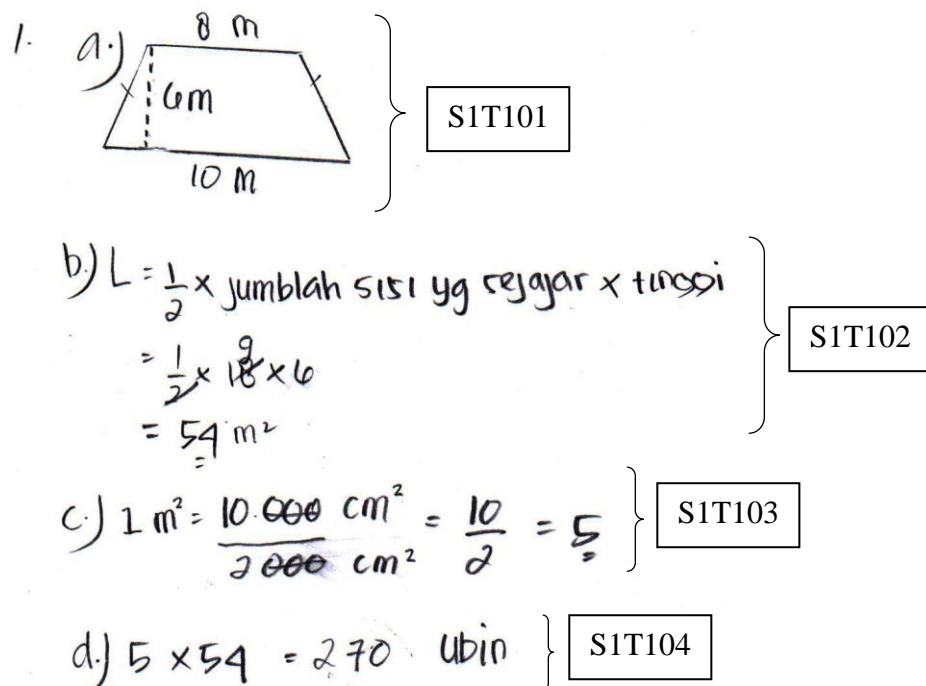 1. a.) 8 m
6m
10 m
S1T101
b.) L = 1/2 x jumblah sisi yg sejajar x tinggi
= 1/2 x 18 9 x 6
= 54 m²
S1T102
c.) 1 m² = 10.000 cm² / 2000 cm² = 10/2 = 5
S1T103
d.) 5 x 54 = 270 ubin
S1T104